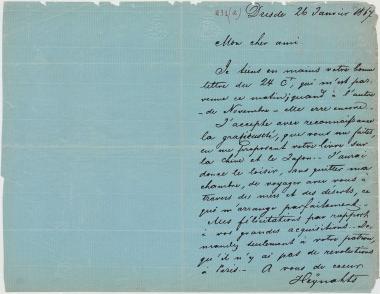 Dresde 26 Janvier 1867
Mon cher ami
Je tiens en mains votre bonne
lettre du 24 Ct, qui m'est par-
venue ce matin; quand à l'autre
- de Novembre - elle erre encore.
J'accepte avec reconnaissance
la gracieuseté, que vous me faites
en me proposant votre livre sur
la Chine et le Japon. - J'aurai
donc le loisir, sans quitter ma
chambre, de voyager avec vous à
travers des mers et des déserts, ce
qui m'arrange parfaitement. -
Mes félicitations par rapport
à vos grandes acquisitions. - De-
mandez seulement à votre patron,
qu'il n'y ait pas de revolutions
à Paris. - A vous de coeur